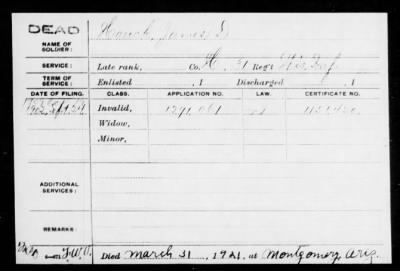 DEAD
NAME OF SOLDIER: Houck, James D
SERVICE: Late rank, Co. H, 31 Reg't Wis. Inf.
TERM OF SERVICE: Enlisted , 1 Discharged , 1
DATE OF FILING. CLASS. APPLICATION NO. LAW. CERTIFICATE NO.
Invalid, 1291.061
Widow,
Minor,
ADDITIONAL SERVICES:
REMARKS
Died March 31, 1921, at Montgomery, Ariz.